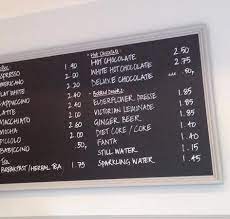 ESPRESSO 1.40
AMERICANO 2.00
FLAT WHITE 2.20
CAPPUCCINO 2.20
LATTE 2.20
MACCHIATO 2.60
MOCHA 2.60
PICCOLO 2.00
BABICCINO .50p
TEA
BREAKFAST/HERBAL TEA 1.75
HOT CHOCOLATE
HOT CHOCOLATE 2.50
WHITE HOT CHOCOLATE 2.75
DELUXE CHOCOLATE .50p
BOTTLED DRINKS
ELDERFLOWER PRESSE 1.85
VICTORIAN LEMONADE 1.85
GINGER BEER 1.85
DIET COKE / COKE 1.40
FANTA 1.40
STILL WATER 1.15
SPARKLING WATER 1.45